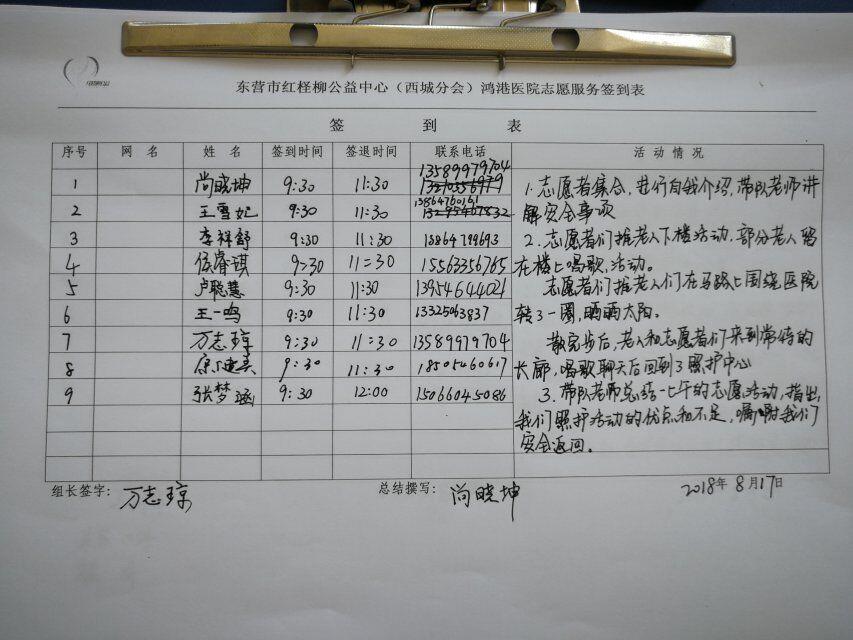 东营市红柽柳公益中心（西城分会）鸿港医院志愿服务签到表
签 到 表
序号 网 名 姓 名 签到时间 签退时间 联系电话 活 动 情 况
1 尚晓坤 9:30 11:30 13589979704
2 王雪妃 9:30 11:30 13864760161
3 李祥舒 9:30 11:30
4 伍睿琪 9:30 11:30 15563356765
5 卢聪慧 9:30 11:30 13954644021
6 王一鸣 9:30 11:30 13325063837
7 万志琼 9:30 11:30 13589979704
8 9:30 11:30 18505460617
9 张梦涵 9:30 12:00 15066045086
1.志愿者集合,进行自我介绍,带队老师讲
解安全事项
2.志愿者们推老人下楼活动,部分老人留
在楼上唱歌,活动。
志愿者们推老人们在马路上围绕医院
转了一圈,晒晒太阳。
散完步后,老人和志愿者们来到常待的
长廊,唱歌聊天后回到了照护中心
3.带队老师总结上午的志愿活动,指出
我们照护活动的优点和不足,嘱咐我们
安全返回。
组长签字: 万志琼 总结撰写: 尚晓坤 2018年8月17日